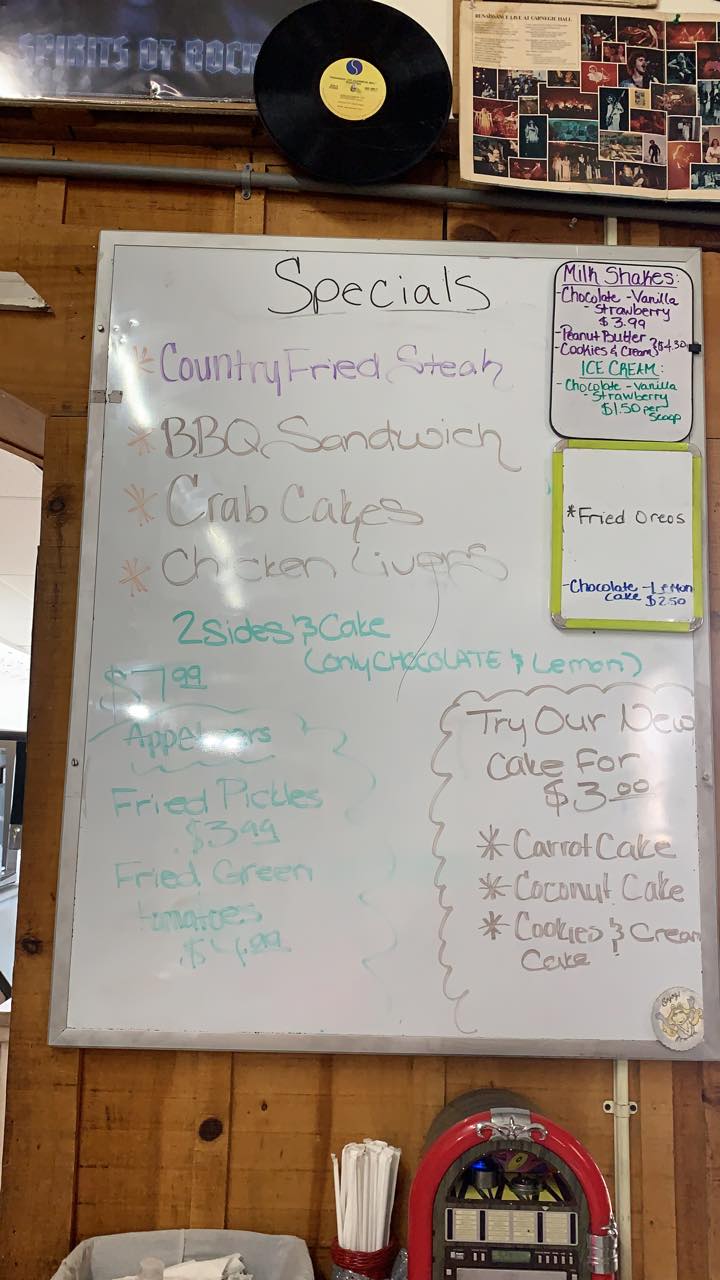 SPIRITS OF ROCK
RENAISSANCE LIVE AT CARNEGIE HALL
Specials
* Country Fried Steak
* BBQ Sandwich
* Crab Cakes
* Chicken Livers
2 Sides & Cake
(only CHOCOLATE & Lemon)
$7.99
Appetizers
Fried Pickles
$3.99
Fried Green
tomatoes
$4.99
Milk Shakes:
-Chocolate -Vanilla
-Strawberry
$3.99
-Peanut Butter
-Cookies & Cream $4.30
ICE CREAM:
-Chocolate -Vanilla
-Strawberry
$1.50 per
Scoop
*Fried Oreos
-Chocolate -Lemon
Cake $2.50
Try Our New
Cake For
$3.00
* Carrot Cake
* Coconut Cake
* Cookies & Cream
Cake